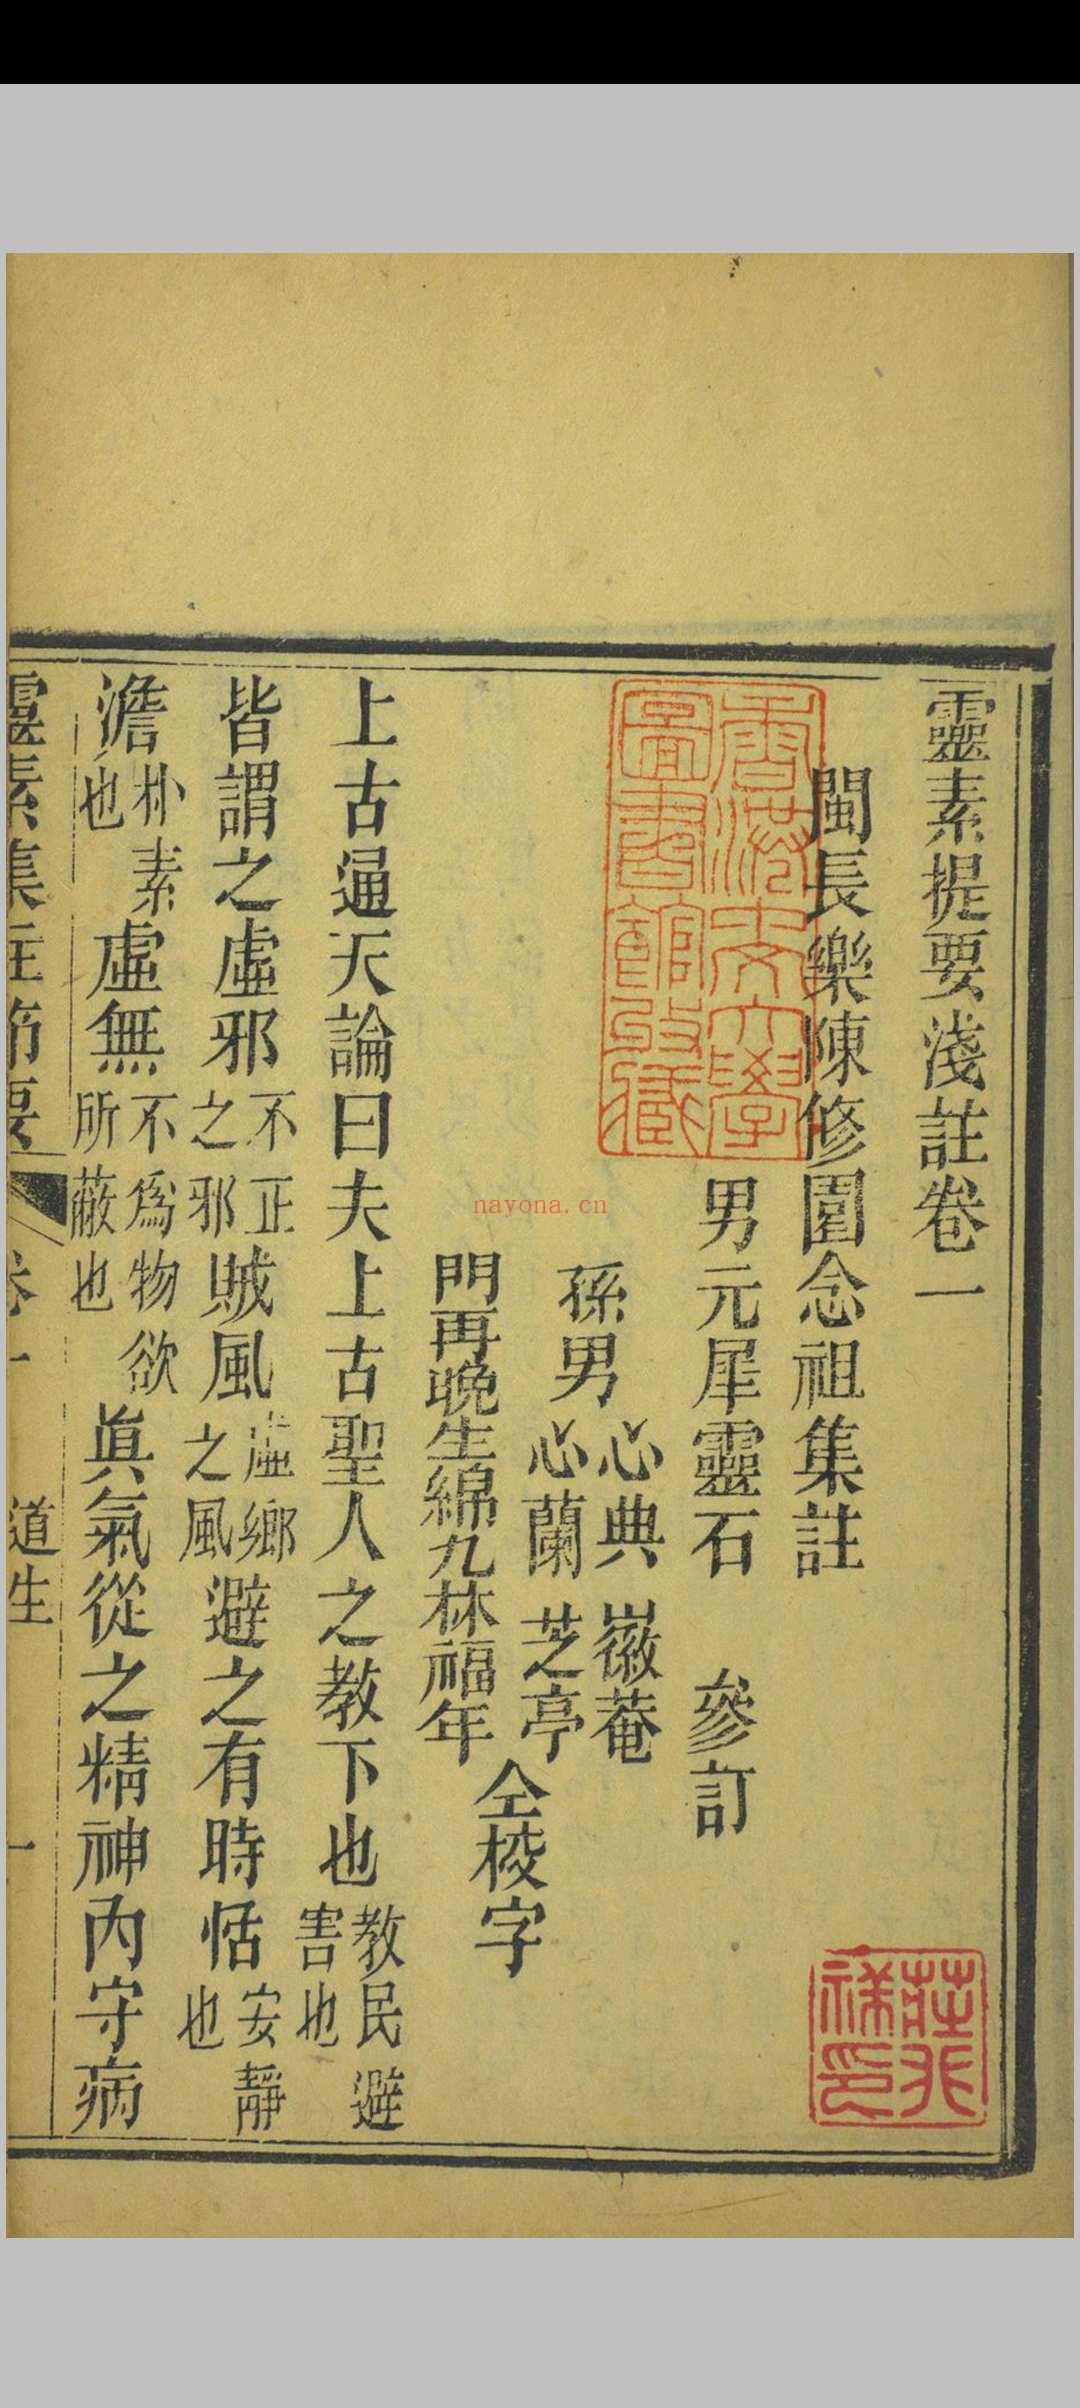 靈素提要淺註卷一
閩長樂陳修園念祖集註
男元犀靈石 參訂
孫男 心典 徽菴
心蘭 芝亭
門再晚生綿九林福年
仝校字
上古通天論曰夫上古聖人之教下也 教民避害也
皆謂之虛邪 不正之邪 賊風 虛鄉之風 避之有時恬 安靜也
澹 朴素也 虛無 不爲物欲所蔽也 眞氣從之精神內守病
靈素集註節要 卷一 道生 一
香港大學
圖書館
莊兆祥印
nayona.cn